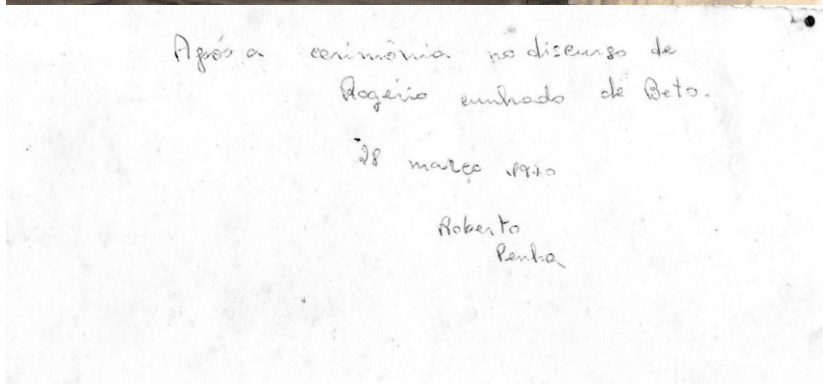 Após a cerimônia no discurso de
Rogério cunhado de Beto.
28 março 1970
Roberto
Penha